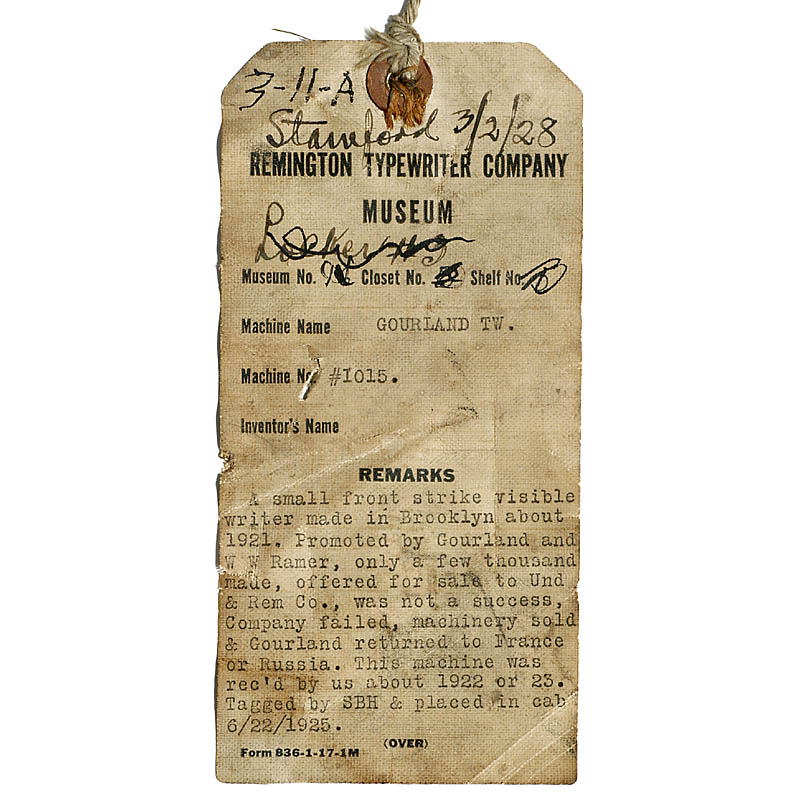 3-11-A
Stamford 3/2/28
REMINGTON TYPEWRITER COMPANY
MUSEUM
Locker #3
Museum No. Closet No. Shelf No.
Machine Name GOURLAND TW.
Machine No. #1015.
Inventor's Name
REMARKS
A small front strike visible
writer made in Brooklyn about
1921. Promoted by Gourland and
W W Ramer, only a few thousand
made, offered for sale to Und
& Rem Co., was not a success,
Company failed, machinery sold
& Gourland returned to France
or Russia. This machine was
rec'd by us about 1922 or 23.
Tagged by SBH & placed in cab
6/22/1925.
(OVER)
Form 836-1-17-1M